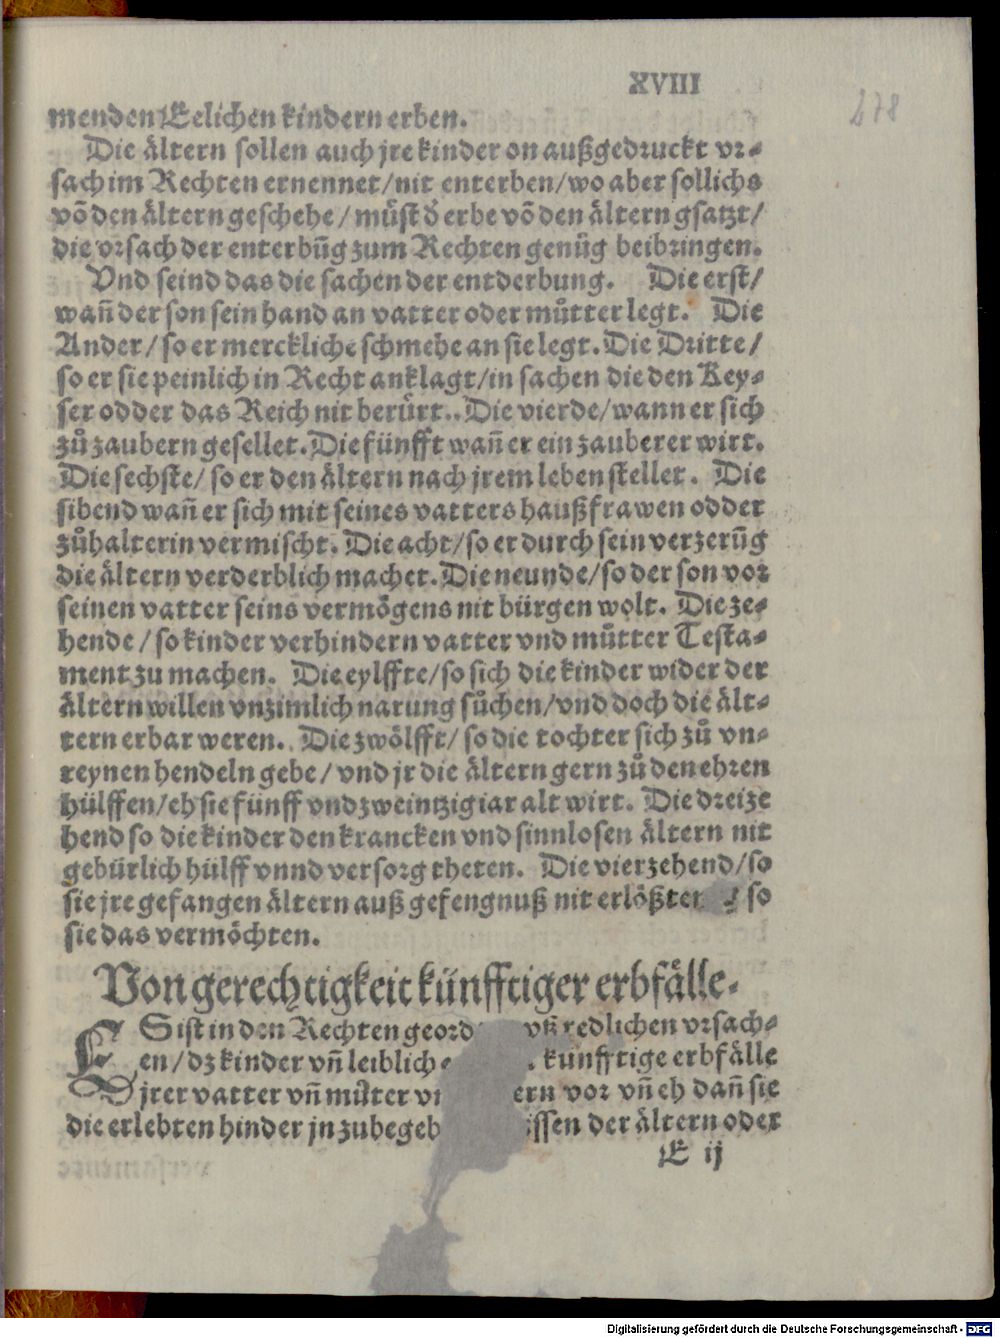 XVIII
278
menden Eelichen kindern erben.
Die ältern sollen auch jre kinder on außgedruckt vr-
sach im Rechten ernennet/nit enterben/wo aber sollichs
võ den ältern geschehe/müst d̕ erbe võ den ältern gsatzt/
die vrsach der enterbũg zum Rechten genůg beibringen.
Vnd seind das die sachen der entderbung. Die erst/
wañ der son sein hand an vatter oder můtter legt. Die
Ander/so er merckliche schmehe an sie legt. Die Dritte/
so er sie peinlich in Recht anklagt/in sachen die den Key-
ser odder das Reich nit berürt.. Die vierde/wann er sich
zů zaubern gesellet. Die fünfft wañ er ein zauberer wirt.
Die sechste/so er den ältern nach jrem leben stellet. Die
sibend wañ er sich mit seines vatters haußfrawen odder
zůhalterin vermischt. Die acht/so er durch sein verzerũg
die ältern verderblich machet. Die neunde/so der son vor
seinen vatter seins vermögens nit bürgen wolt. Die ze-
hende/so kinder verhindern vatter vnd můtter Testa-
ment zu machen. Die eylffte/so sich die kinder wider der
ältern willen vnzimlich narung sůchen/vnd doch die ält-
tern erbar weren. Die zwölfft/so die tochter sich zů vn-
reynen hendeln gebe/vnd jr die ältern gern zů den ehren
hülffen/eh sie fünff vnd zweintzig iar alt wirt. Die dreize
hend so die kinder den krancken vnd sinnlosen ältern nit
gebürlich hülff vnnd versorg theten. Die vierzehend/so
sie jre gefangen ältern auß gefengnuß nit erlößten so
sie das vermöchten.
Von gerechtigkeit künfftiger erbfälle.
ES ist in den Rechten redlichen vrsach-
en/dz kinder vñ künfftige erbfälle
jrer vatter vñ můter vor vñ eh dañ sie
die erlebten hinder jn der ältern oder
E ij
Digitalisierung gefördert durch die Deutsche Forschungsgemeinschaft - DFG